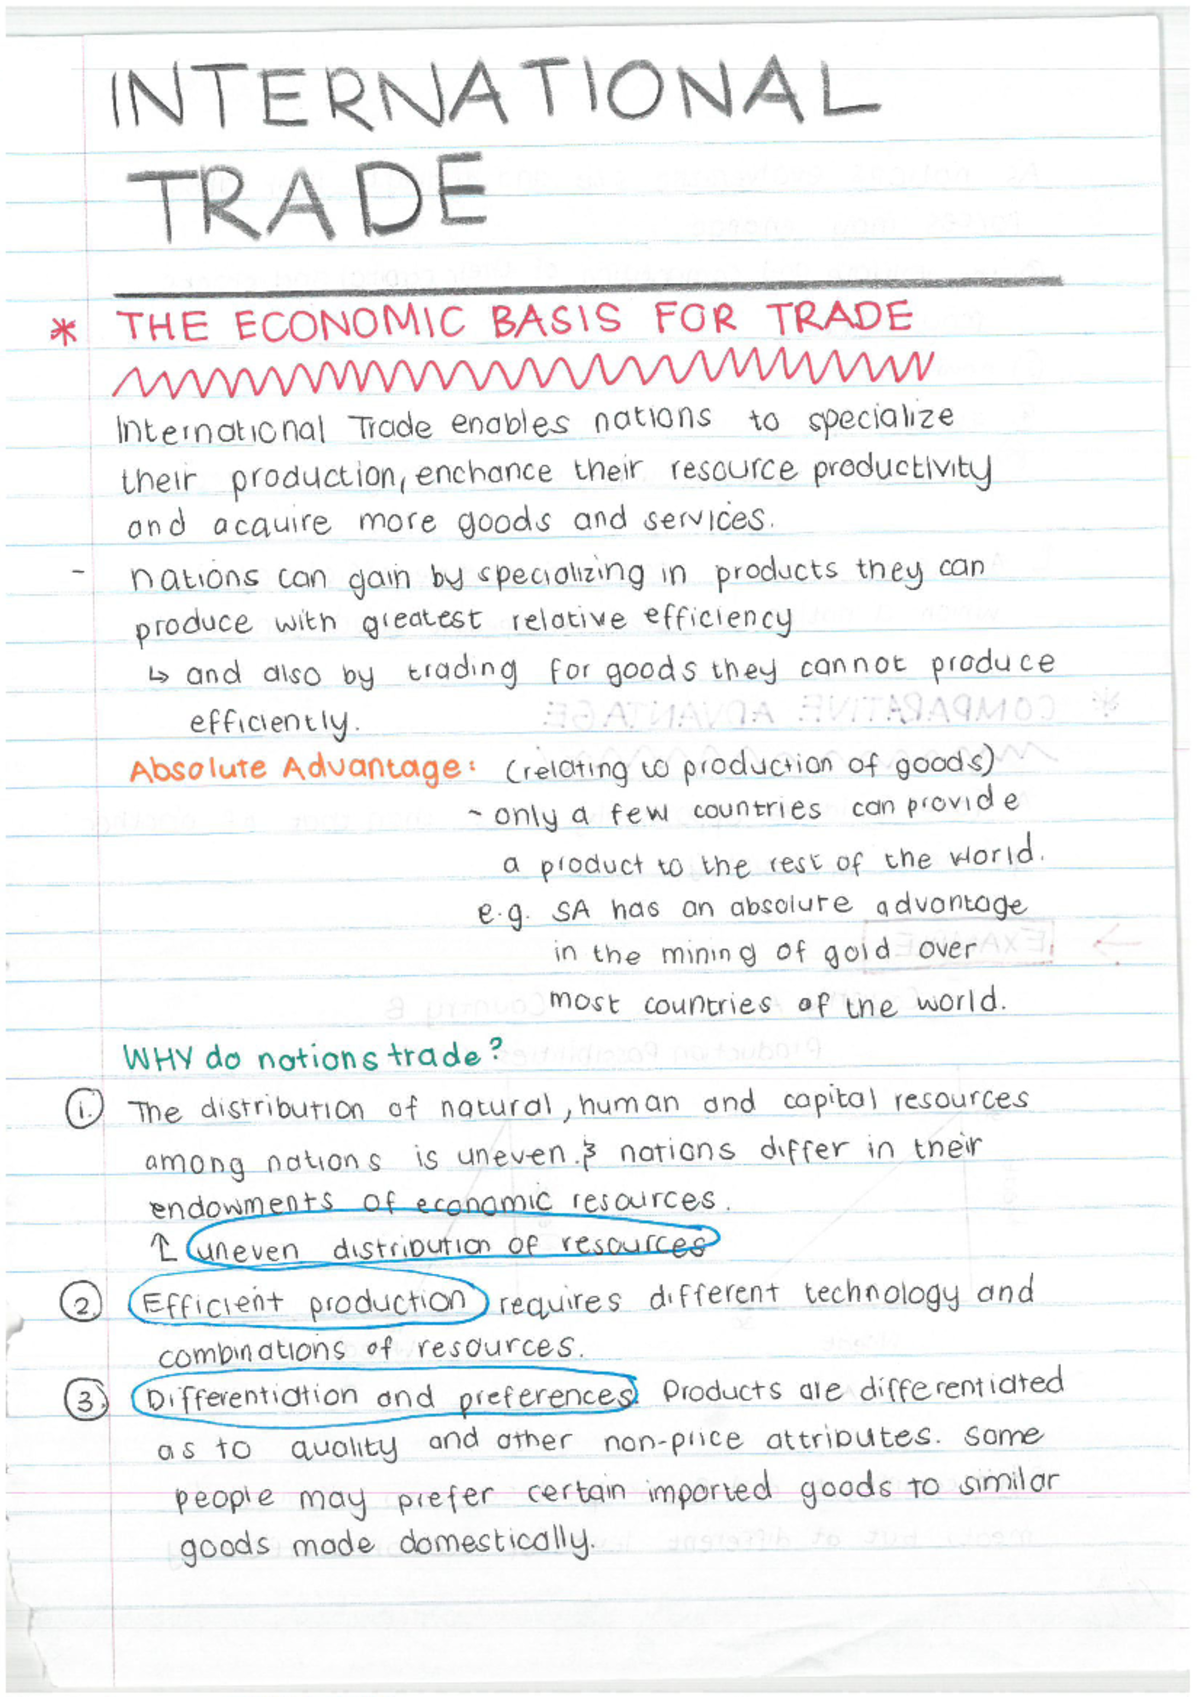 INTERNATIONAL
TRADE
* THE ECONOMIC BASIS FOR TRADE
International Trade enables nations to specialize
their production, enchance their resource productivity
and acquire more goods and services.
- nations can gain by specializing in products they can
produce with greatest relative efficiency
↳ and also by trading for goods they cannot produce
efficiently.
Absolute Advantage: (relating to production of goods)
- only a few countries can provide
a product to the rest of the world.
e.g. SA has an absolute advantage
in the mining of gold over
most countries of the world.
WHY do nations trade?
1. The distribution of natural, human and capital resources
among nations is uneven. & nations differ in their
endowments of economic resources.
↑ uneven distribution of resources
2. Efficient production requires different technology and
combinations of resources.
3. Differentiation and preferences. Products are differentiated
as to quality and other non-price attributes. Some
people may prefer certain imported goods to similar
goods made domestically.